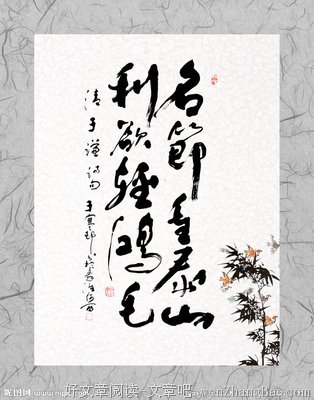 名節重泰山
利欲輕鴻毛
清于謙詩句
昵图网 www.nipic.com
好文章阅读 文章吧 wenZhangBa.com